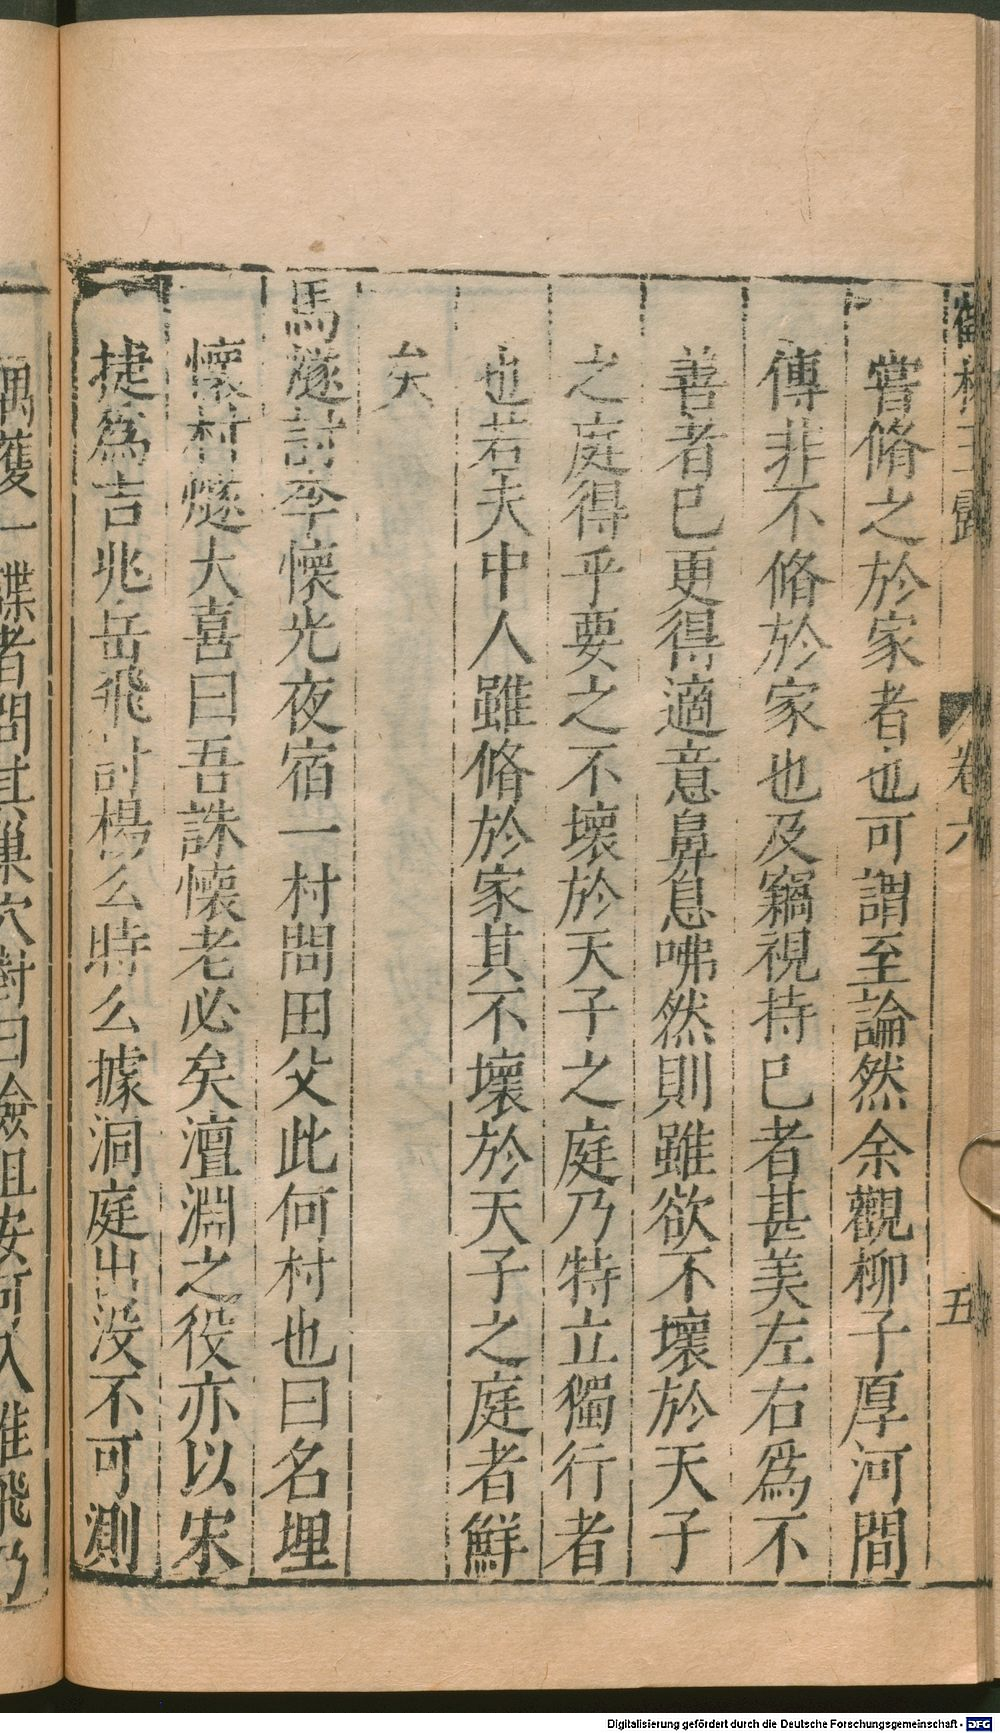 鶴林玉露 卷六 五
嘗脩之於家者也可謂至論然余觀柳子厚河間
傳非不脩於家也及竊視持已者甚美左右爲不
善者已更得適意鼻息咈然則雖欲不壞於天子
之庭得乎要之不壞於天子之庭乃特立獨行者
也若夫中人雖脩於家其不壞於天子之庭者鮮
矣
馬燧討李懷光夜宿一村問田父此何村也曰名埋
懷村燧大喜曰吾誅懷老必矣澶淵之役亦以宋
捷爲吉兆岳飛討楊么時么據洞庭出没不可測
偶獲一諜者問其巢穴對曰險阻安可入惟飛乃
Digitalisierung gefördert durch die Deutsche Forschungsgemeinschaft - DFG